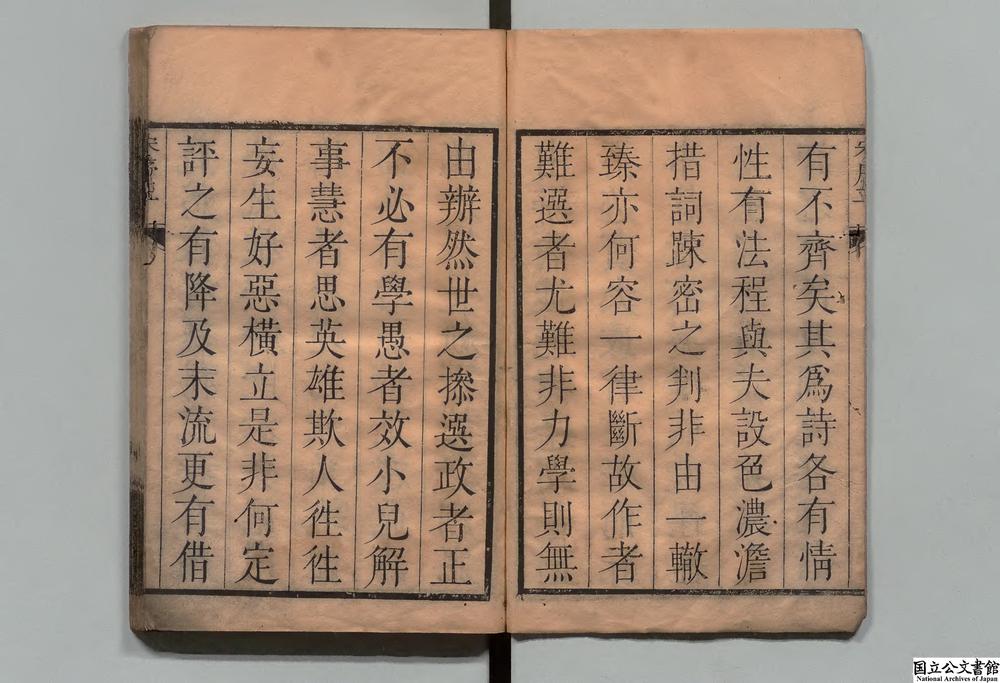 有不齊矣其爲詩各有情
性有法程與夫設色濃澹
措詞踈密之判非由一轍
臻亦何容一律斷故作者
難選者尤難非力學則無
由辦然世之操選政者正
不必有學愚者效小兒解
事慧者思英雄欺人徃徃
妄生好惡橫立是非何定
評之有降及末流更有借
国立公文書館
National Archives of Japan